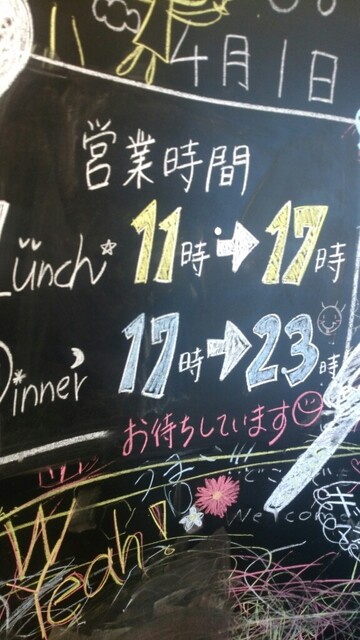 4月1日
営業時間
Lunch 11時→17時
Dinner 17時→23時
お待ちしています
Welcome
Yeah!